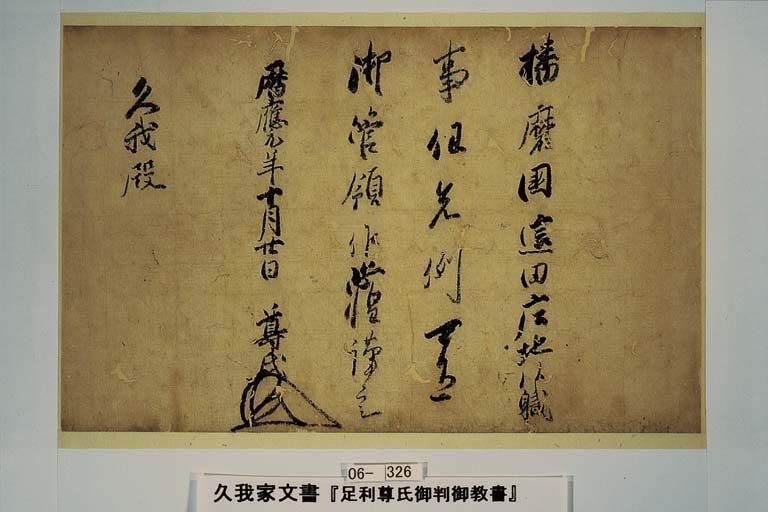 播磨国這田庄地頭職
事任先例可有
御管領候恐惶謹言
暦應元年十月廿日 尊氏
久我殿
06- 326
久我家文書『足利尊氏御判御教書』